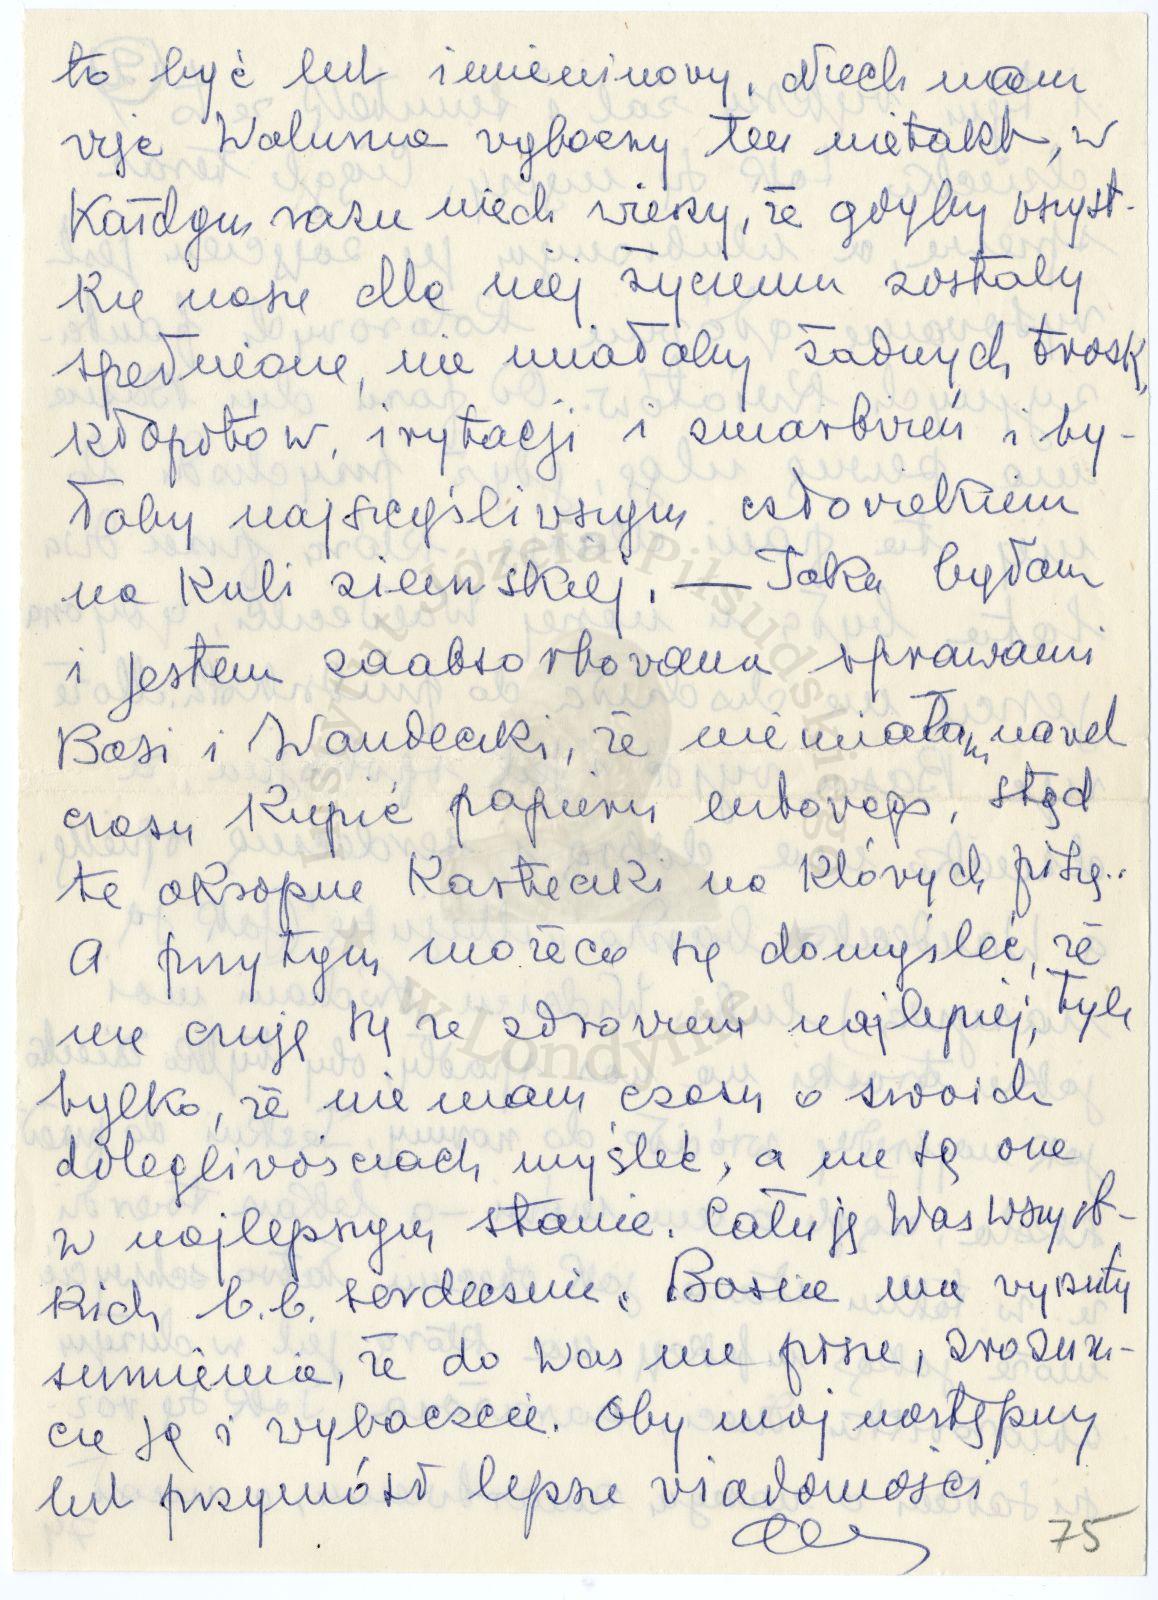 to być list imieninowy. Niech nam
więc Walusia wybaczy ten nietakt, w
każdym razie niech wierzy, że gdyby wszyst-
kie nasze dla niej życzenia zostały
spełnione, nie miałaby żadnych trosk,
kłopotów, irytacji i zmartwień i by-
łaby najszczęśliwszym człowiekiem
na kuli ziemskiej. — Taka byłam
i jestem zaabsorbowana sprawami
Basi i Wandeczki, że nie miałam nawet
czasu kupić papieru listowego, stąd
te okropne karteczki na których piszę..
A przytym możecie się domyśleć, że
nie czuję się ze zdrowiem najlepiej, tyle
tylko, że nie mam czasu o swoich
dolegliwościach myśleć, a nie są one
w najlepszym stanie. Całuję Was wszyst-
kich b.b. serdecznie. Basia ma wyrzuty
sumienia, że do Was nie pisze, zrozum-
cie ją i wybaczcie. Oby mój następny
list przyniósł lepsze wiadomości
75
Instytut Józefa Piłsudskiego
w Londynie